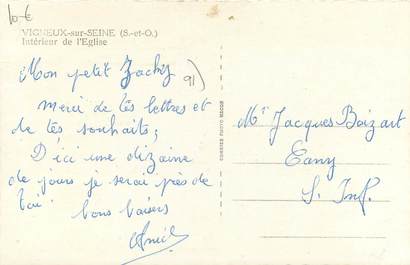 10 €
VIGNEUX-sur-SEINE (S.-et-O.)
Intérieur de l'Eglise
Mon petit Jacky
91)
merci de tes lettres et
de tes souhaits,
D'ici une dizaine
de jours je serai près de
toi bons baisers
COMBIER PHOTO MACON
Mr Jacques Boizart
Eany
S. Inf.